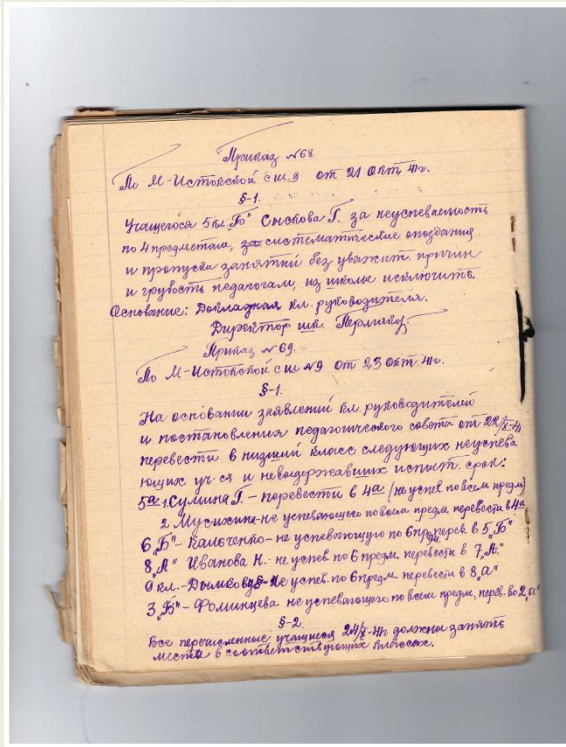 Приказ №68
По М-Истокской с ш. 9 от 21 окт 41г.
§-1.
Учащегося 5 кл „Б" Сыскова Г. за неуспеваемость
по 4 предметам, за систематические опоздания
и пропуски занятий без уважит причин
и грубость педагогам, из школы исключить.
Основание: Докладная кл. руководителя.
Директор шк.
Приказ №69.
По М-Истокской с ш №9 от 23 окт. 41г.
§-1.
На основании заявлений кл. руководителей
и постановления педагогического совета от 22/X-41
перевести в низший класс следующих неуспева
ющих уч-ся и невыдержавших испыт. срок:
5а 1. Сулина Г. - перевести в 4а (не успев. по всем предм)
2. Мусихина - не успевающего по всем предм. перевести в 4а
6 „Б" - - не успевающую по 6 пр. перев. в 5 „Б"
8 „А" Иванова Н. - не успев. по 6 предм. перевести в 7 „А"
9 кл. - не успев. по 6 предм. перевести в 8 „а"
3 „Б" - Фоминцева не успевающего по всем предм, перев. во 2 „а"
§-2.
Все перечисленные учащиеся 24/X-41г должны занять
места в соответствующих классах.